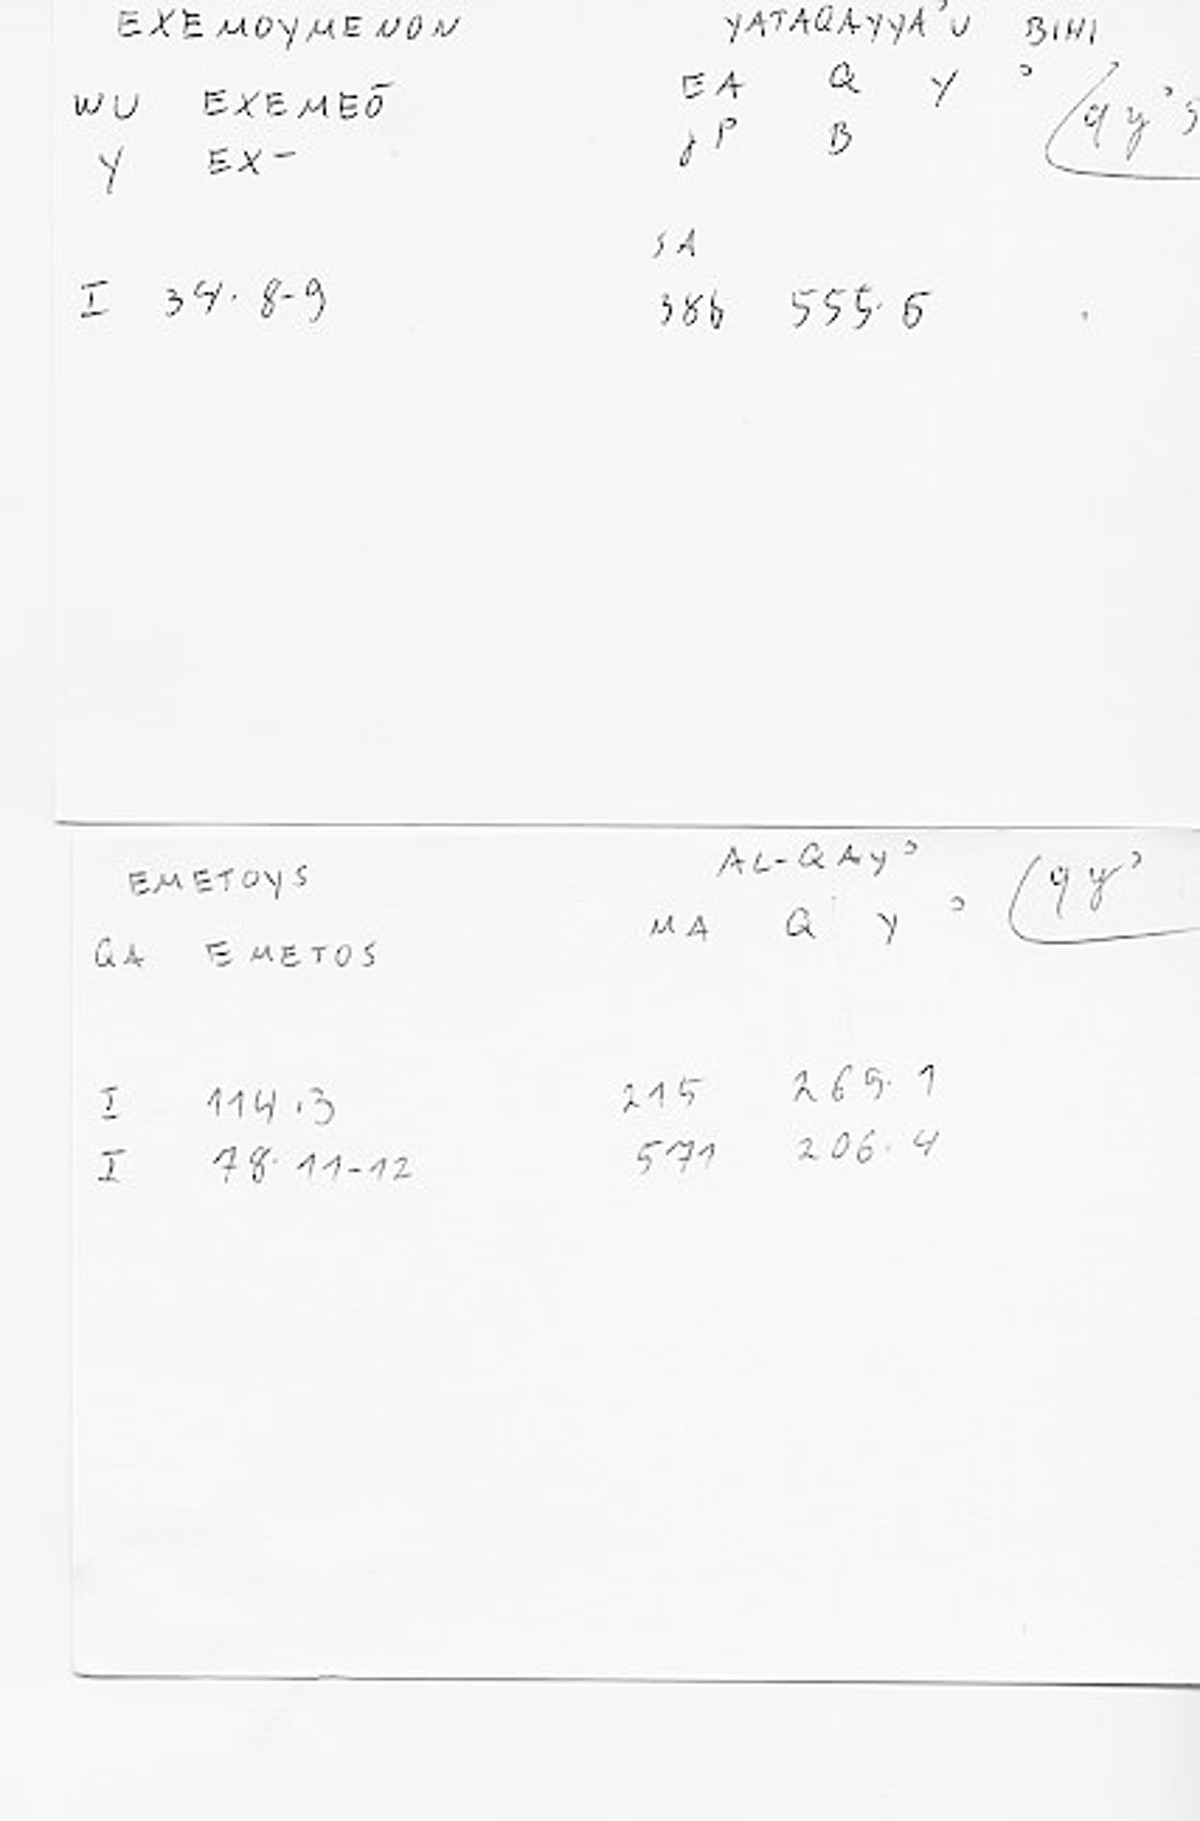 EXEMOYMENON YATAQAYYA'U BIHI
WU EXEMEŌ EA Q Y ' (qy'
Y EX- P B
SA
I 34.8-9 386 555.6
EMETOYS AL-QAY' (qy'
QA EMETOS MA Q Y '
I 114.3 215 269.1
I 78.11-12 571 206.4